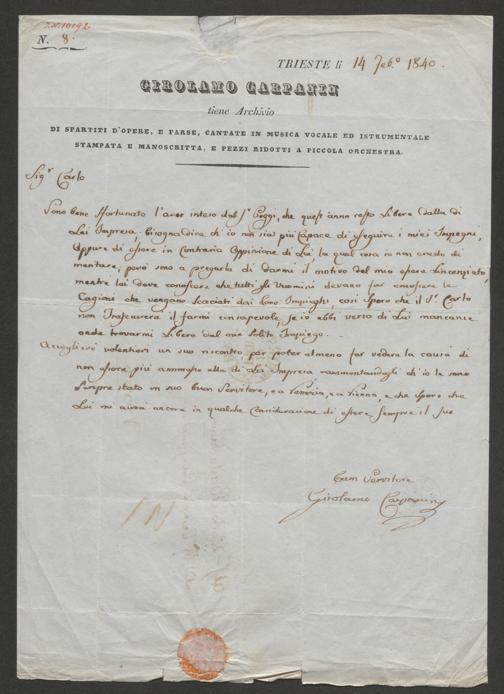 I.N. 10192
N. 8.
TRIESTE li 14 Feb.º 1840.
GIROLAMO CARPANIN
tiene Archivio
DI SPARTITI D'OPERE, E FARSE, CANTATE IN MUSICA VOCALE ED ISTRUMENTALE
STAMPATA E MANOSCRITTA, E PEZZI RIDOTTI A PICCOLA ORCHESTRA.
Sigr Carlo
Sono bene Sfortunato l'aver inteso dal Sr Poggi, che quest'anno resto Libero dalla di
Lei Impresa, bisogna dire ch'io non sia più Capace di eseguire i miei Impegni,
Oppure di essere in Contraria Oppinione di Lei, la qual cosa io non credo di
mentare; però sono a pregarla di darmi il motivo del mio essere Licenziato,
mentre lei deve che tutti gli Uomini devano far le
Cagioni che vengono Scaciati dai loro Impieghi, così Spero che il Sr Carlo
non Trascurerà il farmi consapevole, se io ebbi verso di Lei mancanze
onde trovarmi Libero dal mio Solito Impiego.
volentieri un suo riscontro per poter almeno far vedere la causa di
non essere più ammesso alla di Lei Impresa rammentandogli ch'io le sono
Sempre stato un suo buon Servitore, e a Venezia, e a Vienna, e che Spero che
Lei mi avrà ancora in qualche Considerazione di essere Sempre il Suo
Servitore
Girolamo Carpanin